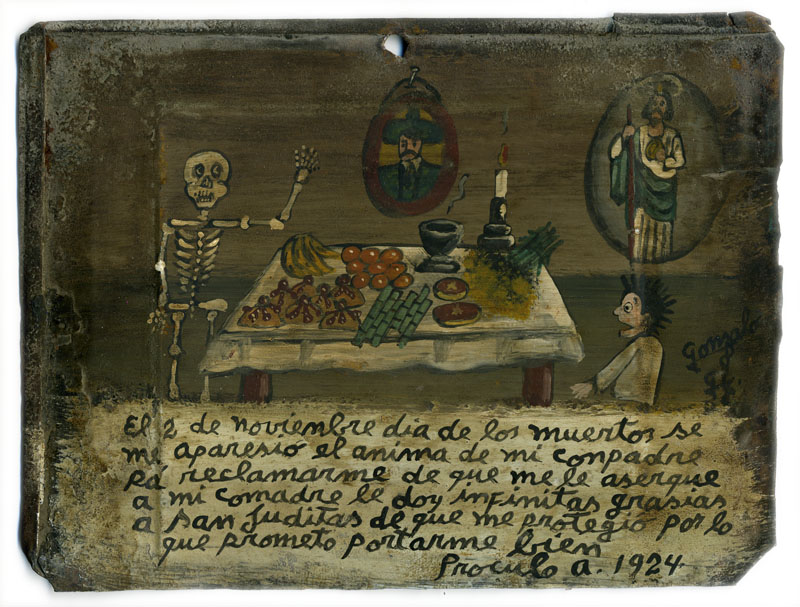 El 2 de novienbre dia de los muertos se
me aparesió el anima de mi conpadre
pá reclamarme de que me le aserque
a mi comadre le doy infinitas grasias
a San Juditas de que me protegio por lo
que prometo portarme bien
Proculo a. 1924.
Gonzalo